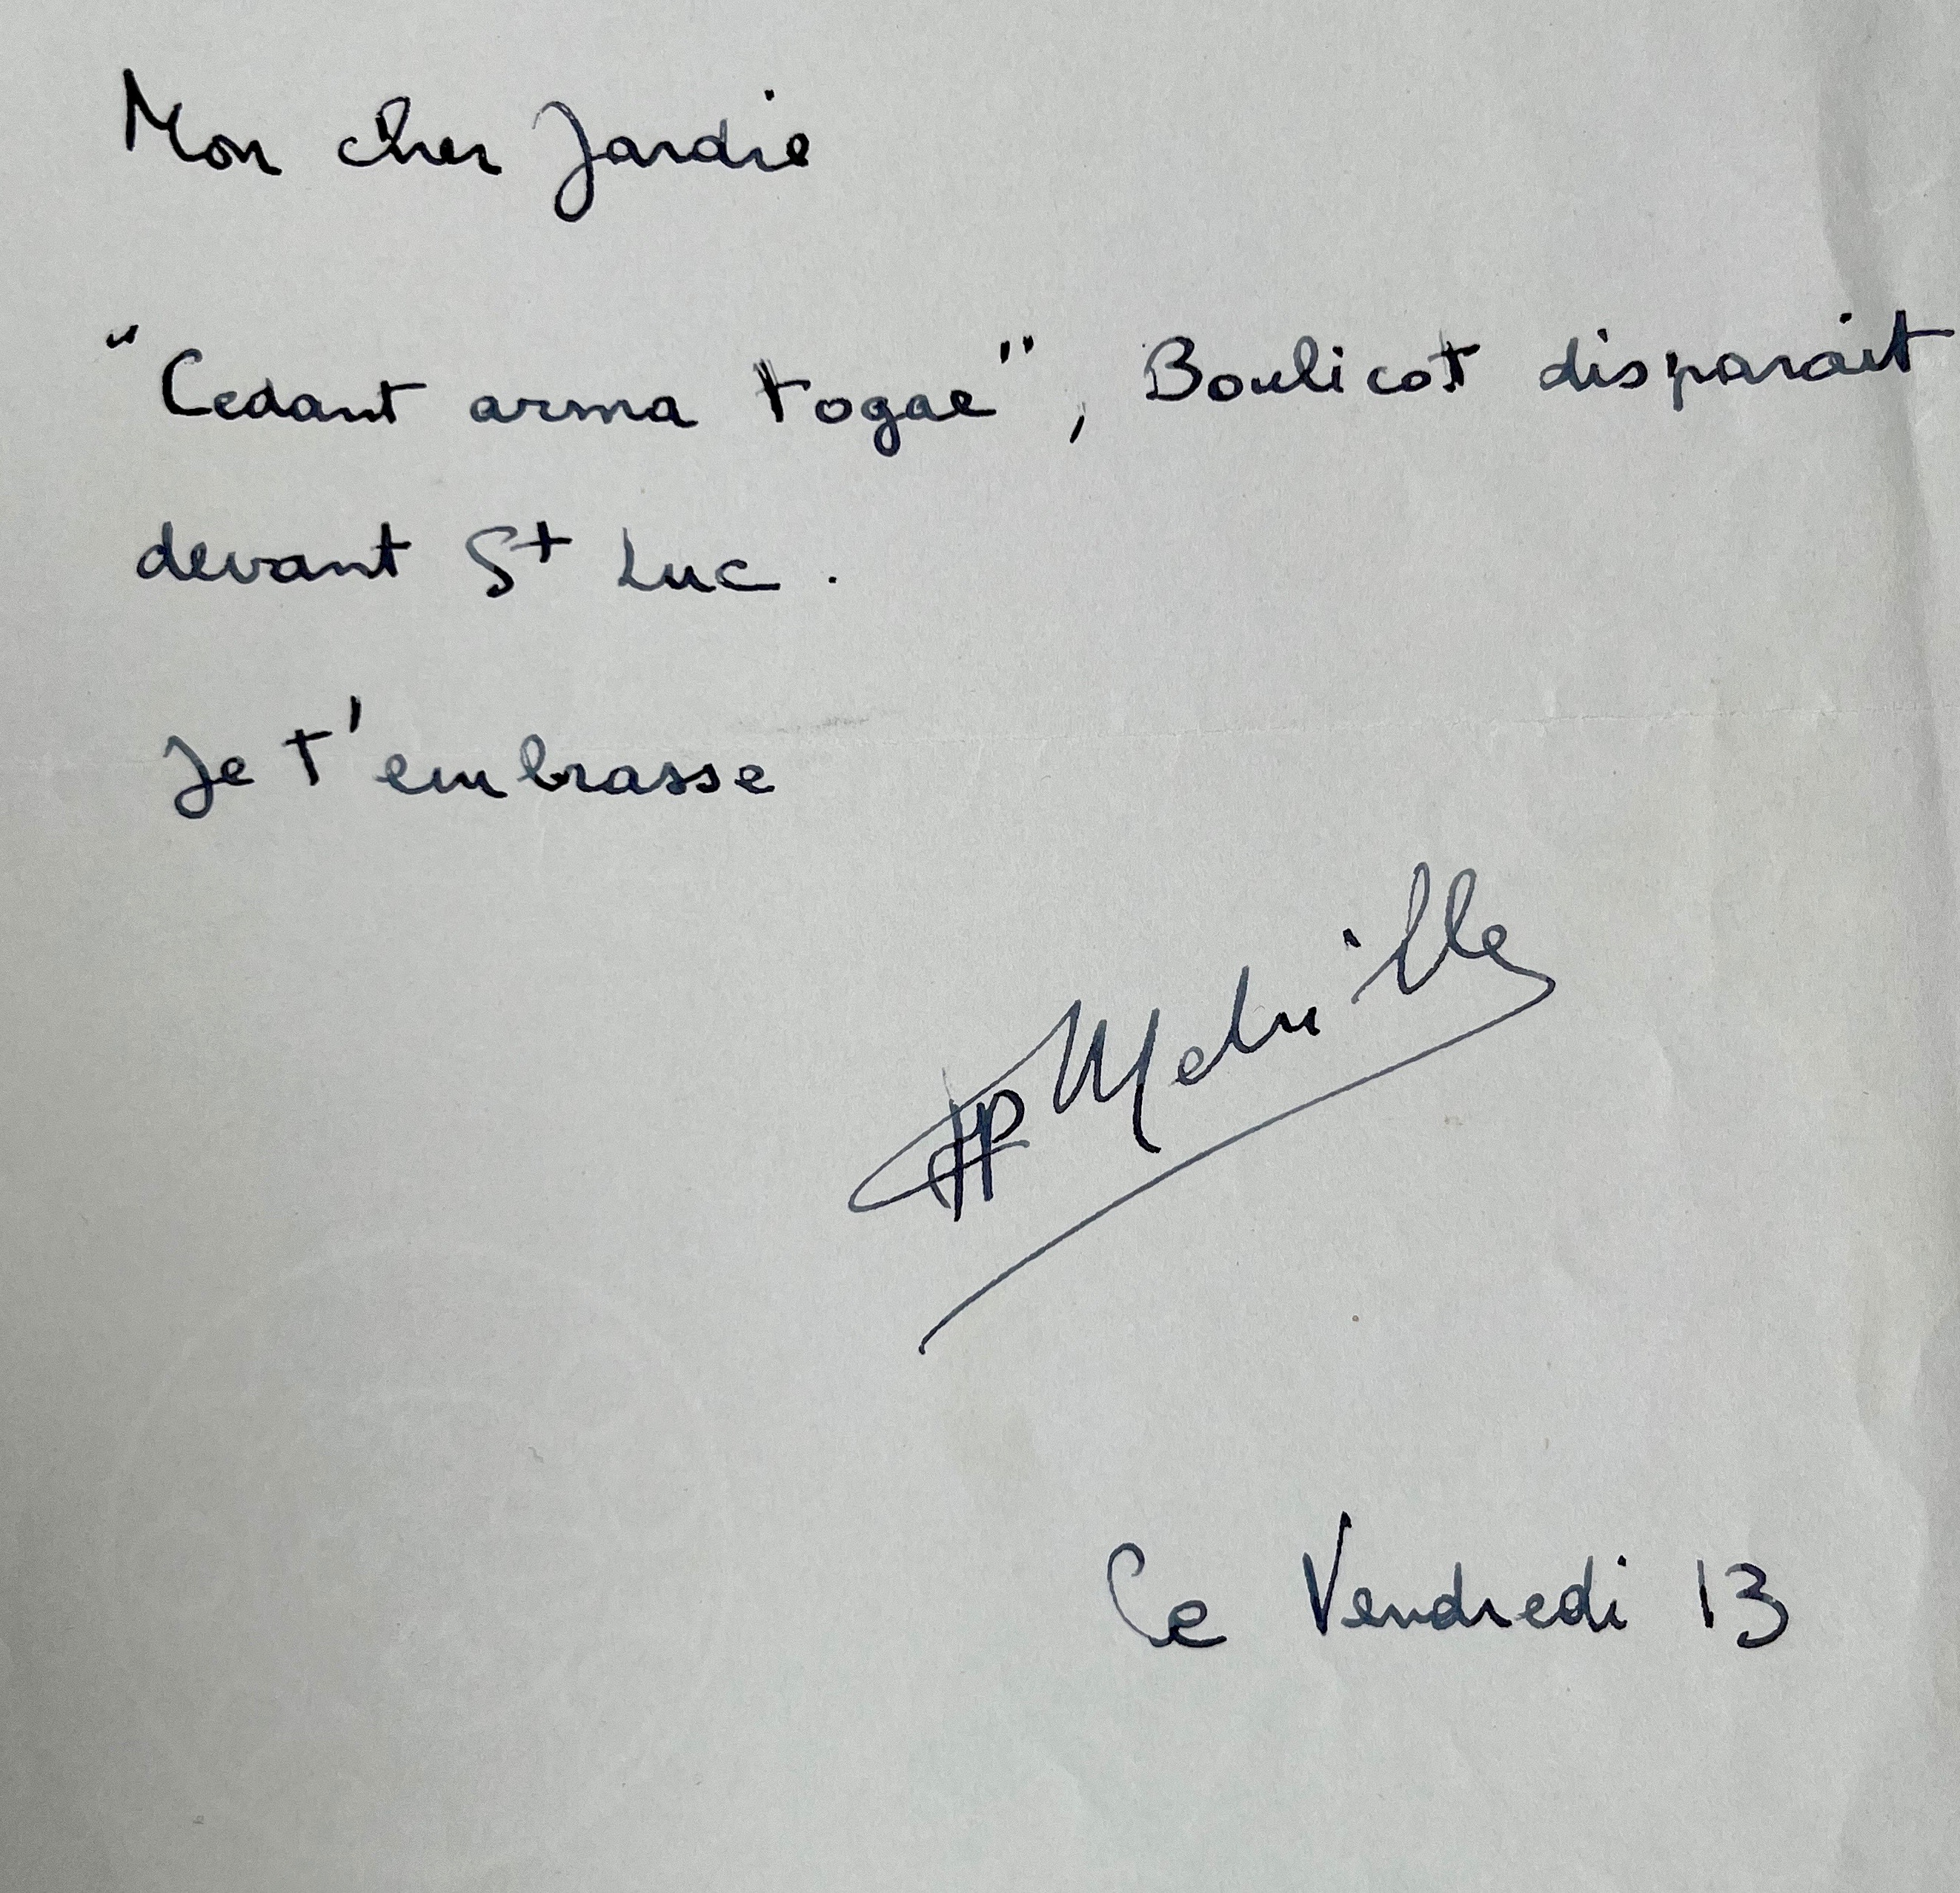 Mon cher Jardie
"Cedant arma togae", Boulicot disparait
devant St Luc.
Je t'embrasse
JP Melville
Ce Vendredi 13